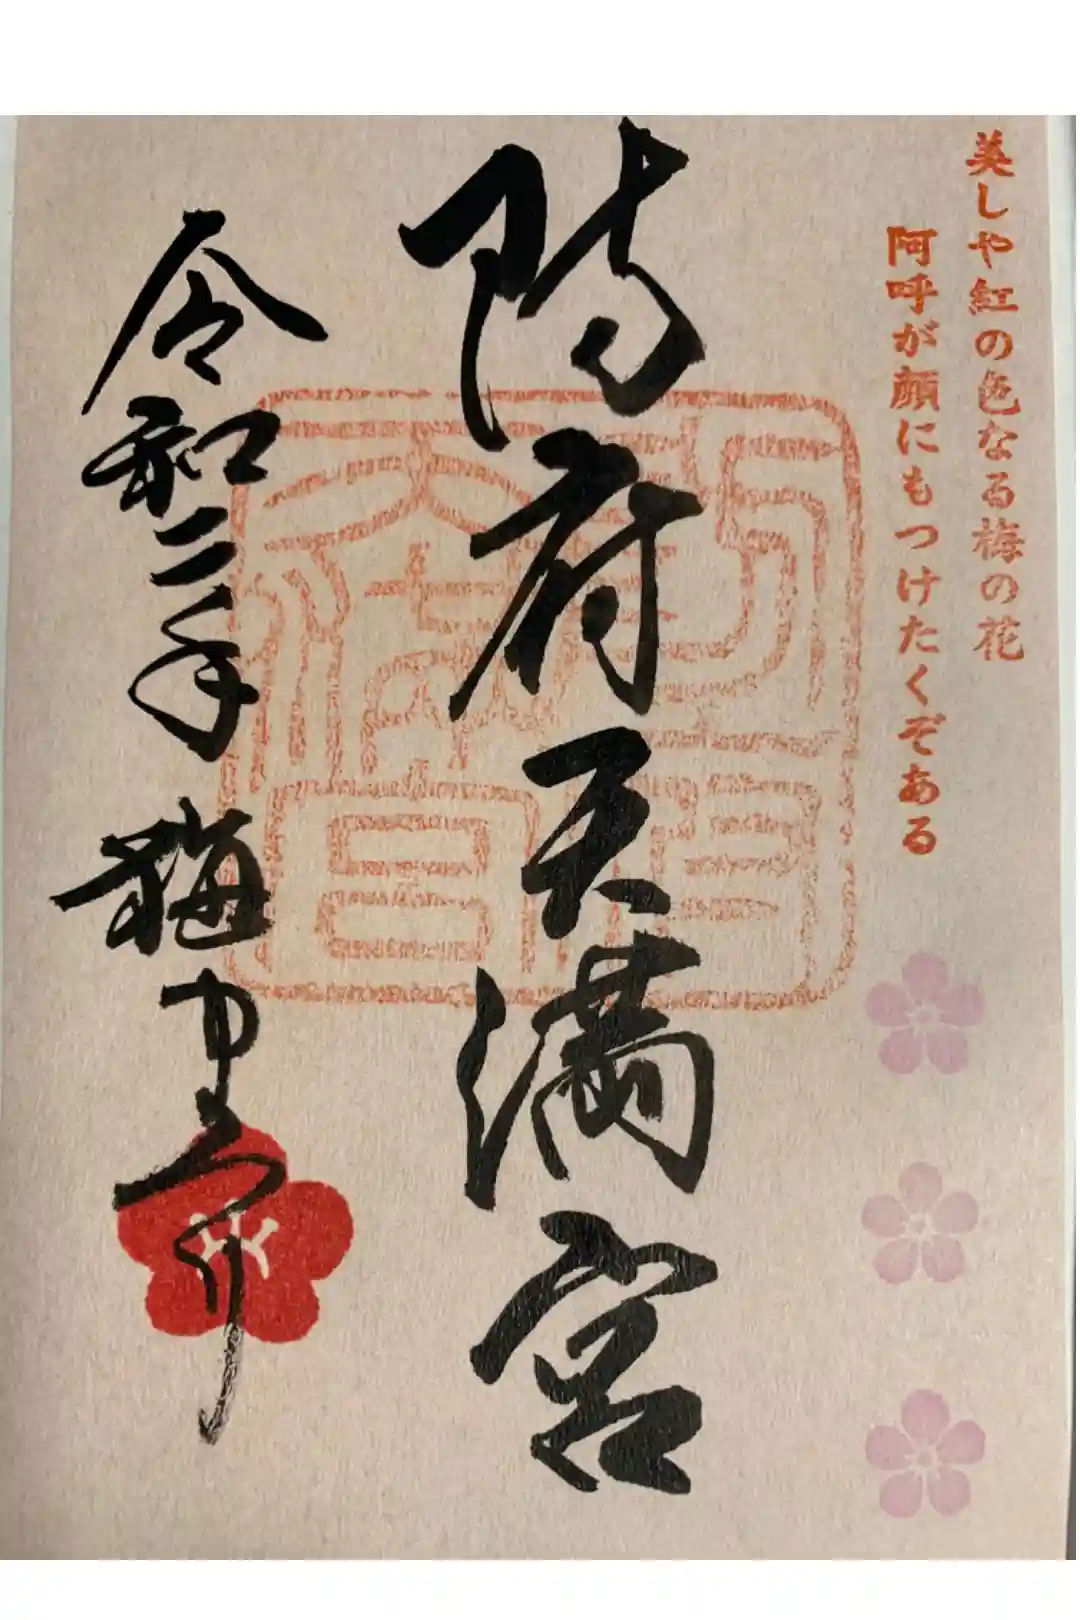 美しや紅の色なる梅の花
阿呼が顔にもつけたくぞある
防府天満宮
令和二年梅